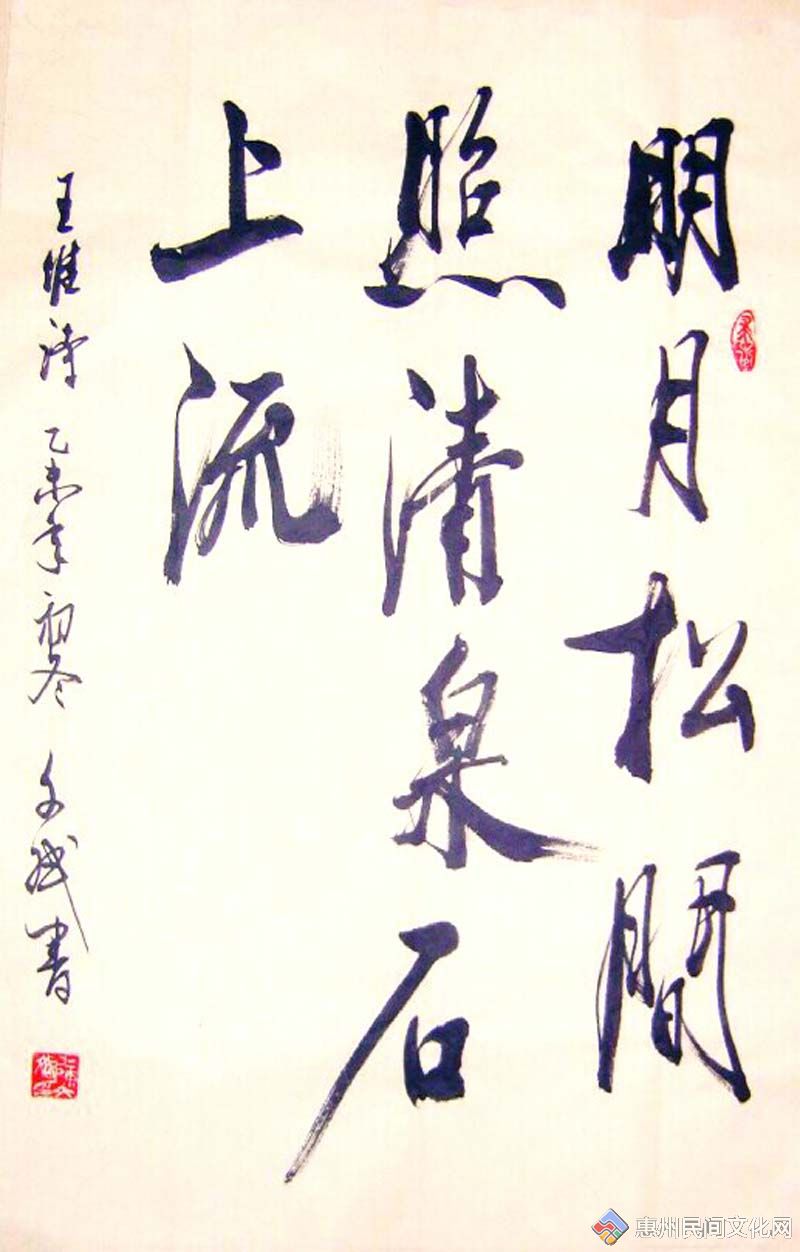 明月松間
照清泉石
上流
王维诗 乙未年初冬 文斌書
惠州民间文化网